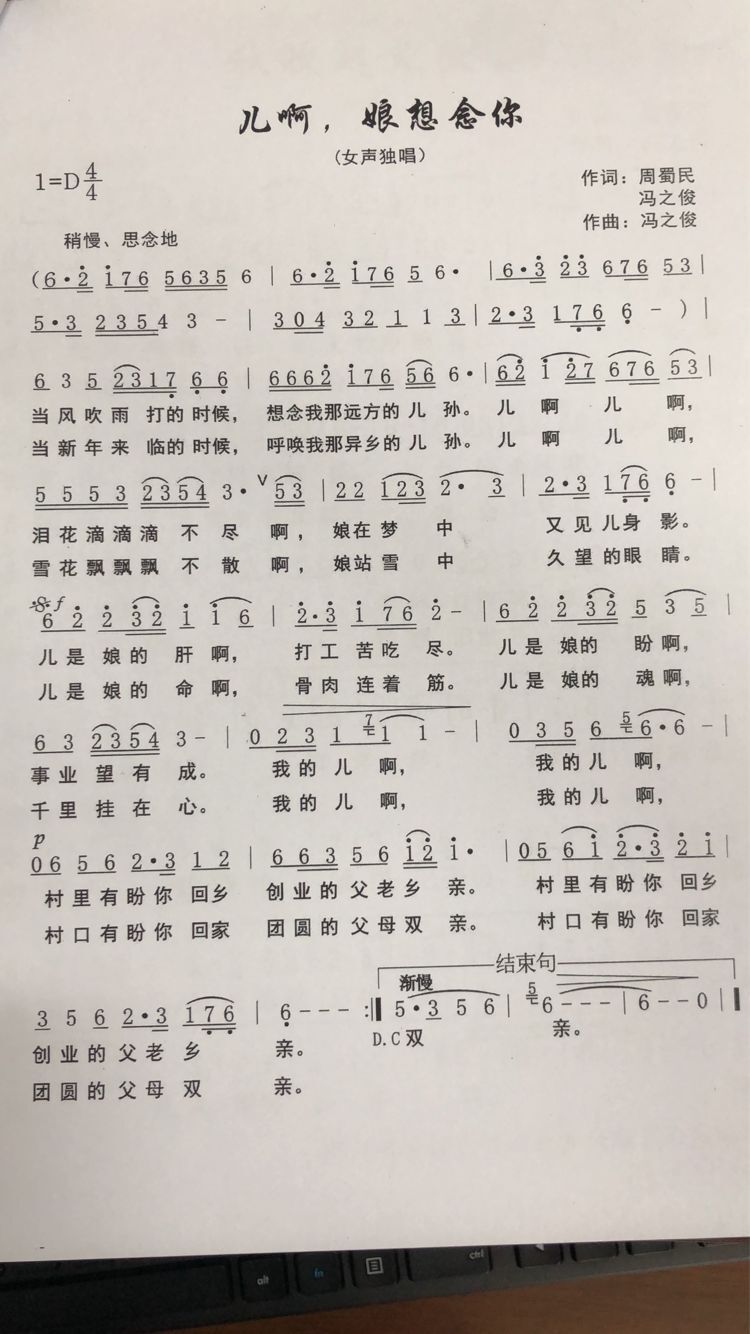 儿啊，娘想念你
（女声独唱）
1=D 4/4
作词：周蜀民
冯之俊
作曲：冯之俊
稍慢、思念地
(6·2 176 5635 6 | 6·2 176 5 6· | 6·3 23 676 53 |
5·3 2354 3 - | 304 32 1 1 3 | 2·3 176 6 - ) |
6 3 5 2317 6 6 | 6662 176 56 6· | 62 1 27 676 53 |
当风吹雨 打的时候， 想念我那远方的儿孙。儿 啊 儿 啊，
当新年来 临的时候， 呼唤我那异乡的儿孙。儿 啊 儿 啊，
5 5 5 3 2354 3· V 53 | 22 123 2· 3 | 2·3 176 6 - |
泪花滴滴滴 不 尽 啊， 娘在梦 中 又见儿身 影。
雪花飘飘飘 不 散 啊， 娘站雪 中 久望的眼 睛。
f
6 2 2 32 1 1 6 | 2·3 1 76 2 - | 6 2 2 32 5 3 5 |
儿是 娘的 肝 啊， 打工 苦吃 尽。 儿是 娘的 盼啊，
儿是 娘的 命 啊， 骨肉 连着 筋。 儿是 娘的 魂啊，
6 3 2354 3 - | 0 2 3 1 7 1 1 - | 0 3 5 6 5 6·6 - |
事业 望有 成。 我的 儿 啊， 我的儿 啊，
千里 挂在 心。 我的 儿 啊， 我的儿 啊，
p
06 56 2·3 12 | 6 63 56 12 1· | 05 61 2·3 21 |
村里有盼你 回乡 创业的父老乡 亲。 村里有盼你 回乡
村口有盼你 回家 团圆的父母双 亲。 村口有盼你 回家
结束句
渐慢
3 5 6 2·3 176 | 6 - - - :| 5·3 5 6 | 5 6 - - - | 6 - - 0 |
D.C 双 亲。
创业的父老 乡 亲。
团圆的父母 双 亲。
alt
fn
ctrl